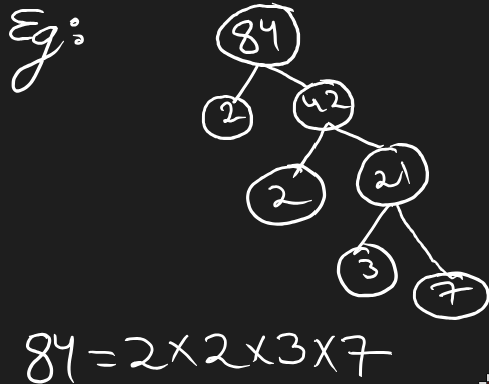 Eg:
84
2 42
2 21
3 7
84 = 2 × 2 × 3 × 7